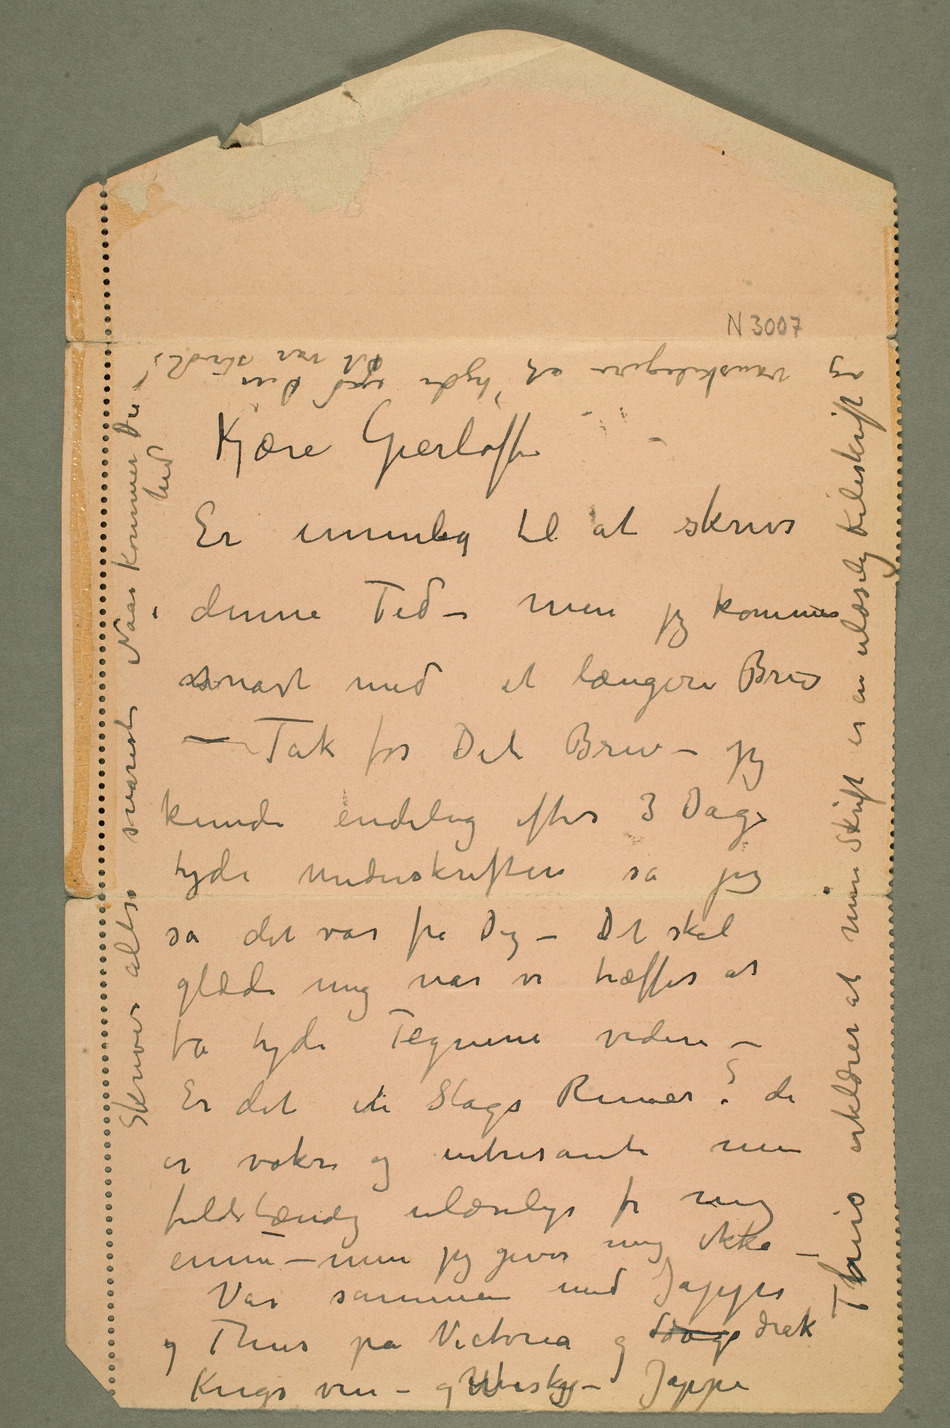 N 3007
Kjære Gierløff
Er umulig til at skrive
i denne Tid – men jeg kommer
snart med et længere Brev
– Tak for Dit Brev – jeg
kunde endelig efter 3 Dage
tyde underskriften så jeg
så det var fra Dig – Det skal
glæde mig når vi træffes at
få tyde Tegnene videre –
Er det et Slags Runer? de
er vakre og intresante men
fuldstændig ulæselige for mig
ennu – men jeg giver mig ikke –
Var sammen med Jappe
og Thiis på Victoria og drak
Krigs vin – og Whisky – Jappe
Thiis erklærer at min Skrift er en ulæselig Kileskrift
og vanskeligere at tyde end din
Det var stridt!
Skriver altså snarest Naar kommer Du
hid